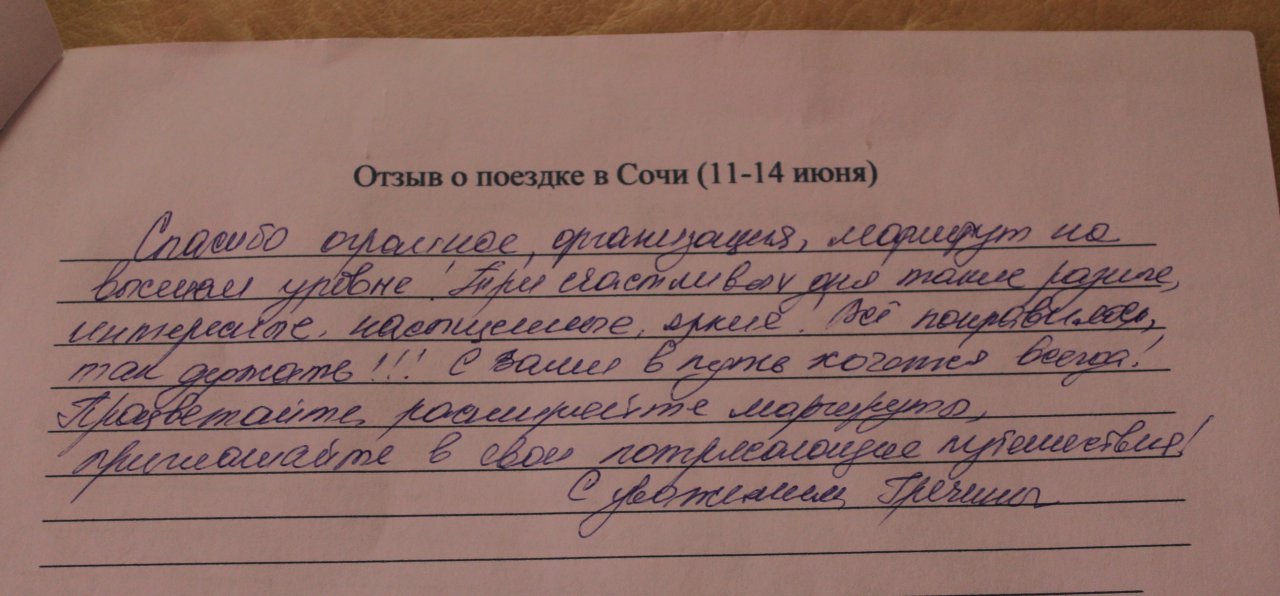 Отзыв о поездке в Сочи (11-14 июня)
Спасибо огромное, организация, маршрут на
высшем уровне! Три счастливых дня такие разные,
интересные, насыщенные, яркие! Всё понравилось,
так держать!!! С Вами в путь хочется всегда!
Процветайте, расширяйте маршруты,
приглашайте в свои потрясающие путешествия!
С уважением, Гречины